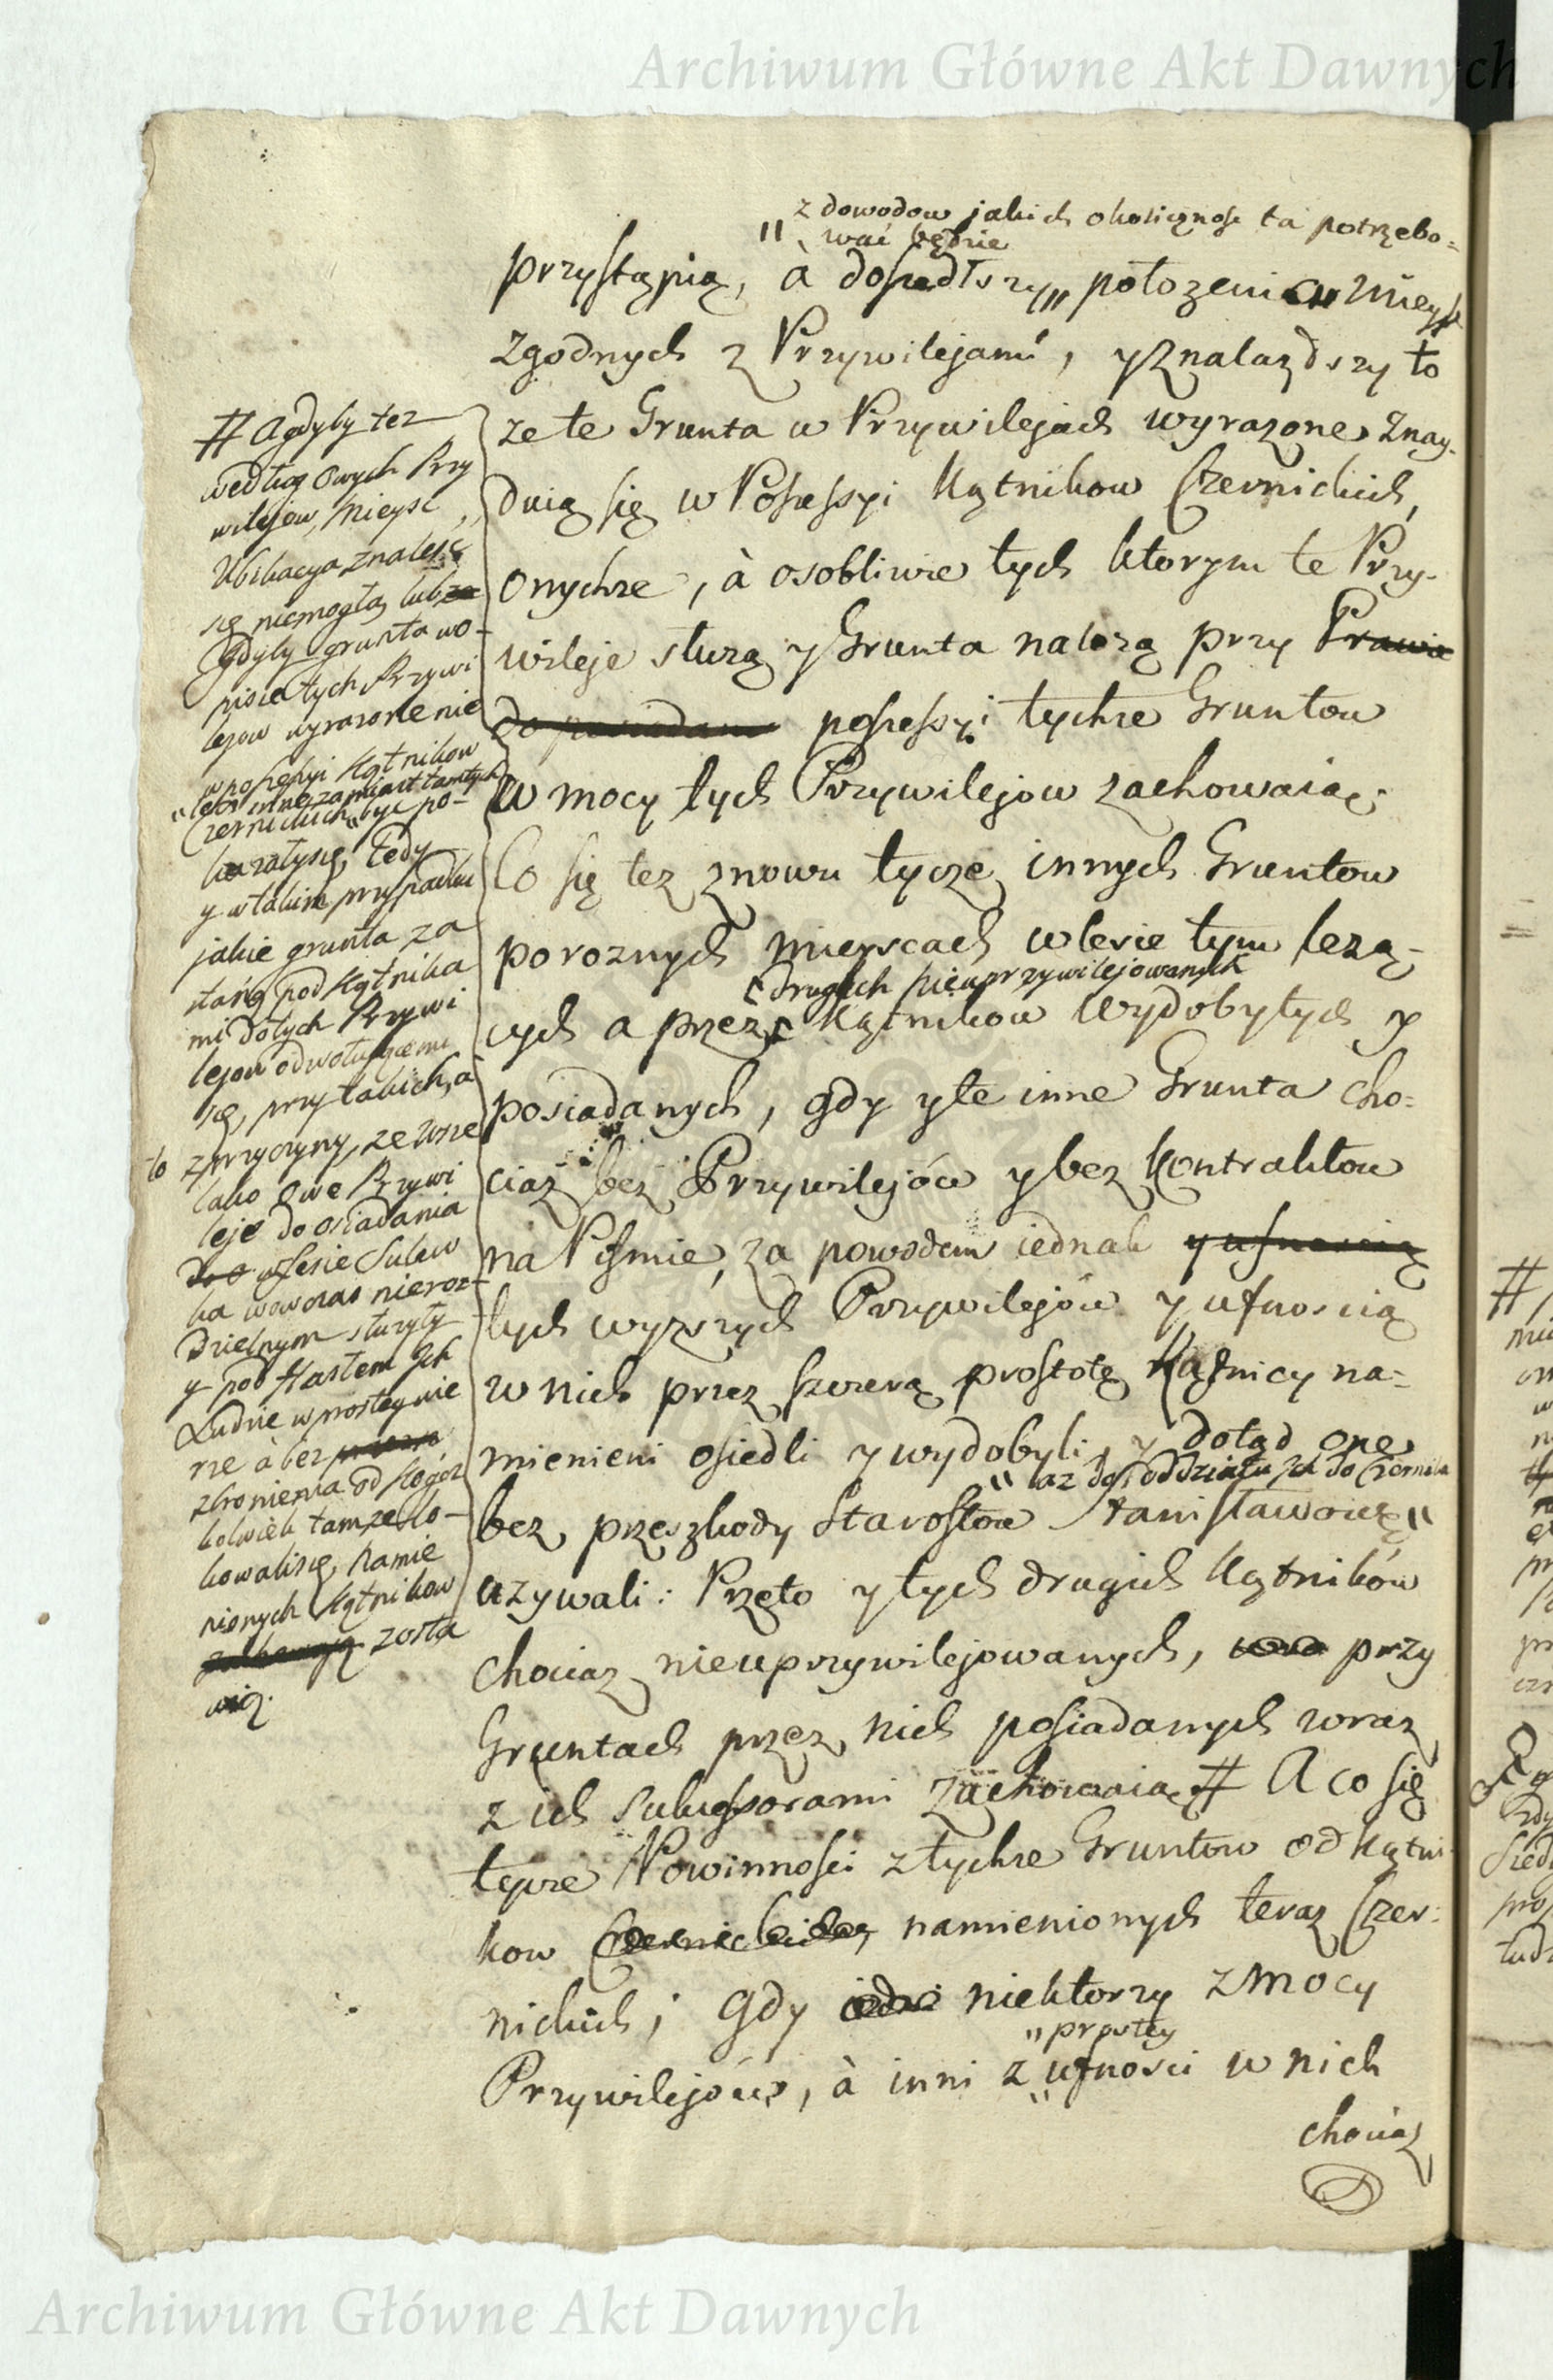 Archiwum Główne Akt Dawnych
z dowodow jakich okolicznosc ta potrzebo=
wać będzie
przystąpią, à doszedłszy położenia Mieysc
zgodnych z Przywilejami, y znalazdszy to
ze te Grunta w Przywilejach wyrazone znay-
duią się w Possessyi Kątnikow Czernickich,
onychze, à osobliwie tych ktorym te Przy-
wileje służą y Grunta należą przy Prawie
do posiadania possessyi tychze Gruntow
w mocy tych Przywilejow zachowaią.
Co się tez znowu tycze innych Gruntow
po roznych mieyscach w lesie tym lezą-
drugich nieuprzywilejowanych
cych a przez Kątnikow wydobytych y
posiadanych, gdy y te inne Grunta cho=
ciaż bez Przywilejów y bez Kontraktow
na Pismie, za powodem iednak y ufnoscią
tych wyzszych Przywilejów y ufnoscią
w nich przez szczerą prostotę Kątnicy na=
mienieni osiedli y wydobyli, y dotąd one
az do oddziału Ich do Czernika
bez przeszkody Starostow Stanisławowie
uzywali: Przeto y tych drugich Kątników
chociaz nieuprzywilejowanych, przy
Gruntach przez nich posiadanych wraz
z ich Sukcessorami zachowaią # A co się
tycze Powinnosci z tychze Gruntow od Kątni
kow Czernickich namienionych teraz Czer=
nickich; gdy niektorzy z mocy
prostey
Przywilejów, à inni z ufnosci w nich
chociaz
# A gdyby tez
według Owych Przy
wilejow, Mieysc
Ubikacya znalesc
się niemogła, lub
gdyby grunta wo-
pisie tych Przywi
lejow wyrazone nie
w possessyi Kątnikow
lecz inne zamiast tamtych
Czernickich być po-
kazały się, tedy
y w takim przypadku
jakie grunta za
staną pod Kątnika
mi do tych Przywi
lejow odwołuącemi
się, przy takich, a
to z przyczyny, ze wsze
lako Owe Przywi
leje do osiadania
w lesie Sulew
ka wowczas nieroz-
dzielnym służyły
y pod Hasłem Ich
Ludzie w prostey wie
rze à bez
zbronienia od Kogoz
kolwiek tamze lo-
kowali się, Namie
nionych Kątnikow
zachowają zosta
wią.
Archiwum Główne Akt Dawnych